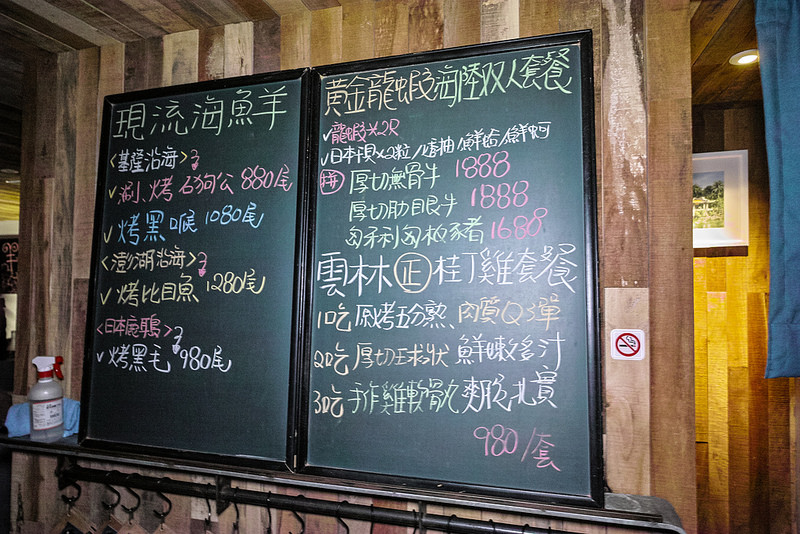 現流海魚羊
<基隆沿海>
✓涮、烤 石狗公 880尾
✓烤黑喉 1080尾
<澎湖沿海>
✓烤比目魚 1280尾
<日本鹿鵰>
✓烤黑毛 980尾
黃金龍蝦海陸双人套餐
✓龍蝦×2R
✓日本干貝×2粒/透抽/鮮蛤/鮮蚵
拼 厚切無骨牛 1888
厚切肋眼牛 1888
匈牙利匈牧豚豬 1680
雲林正桂丁雞套餐
1吃 原烤五分熟、肉質Q彈
2吃 厚切球狀 鮮嫩多汁
3吃 手作雞軟骨丸 爽脆扎實
980/套